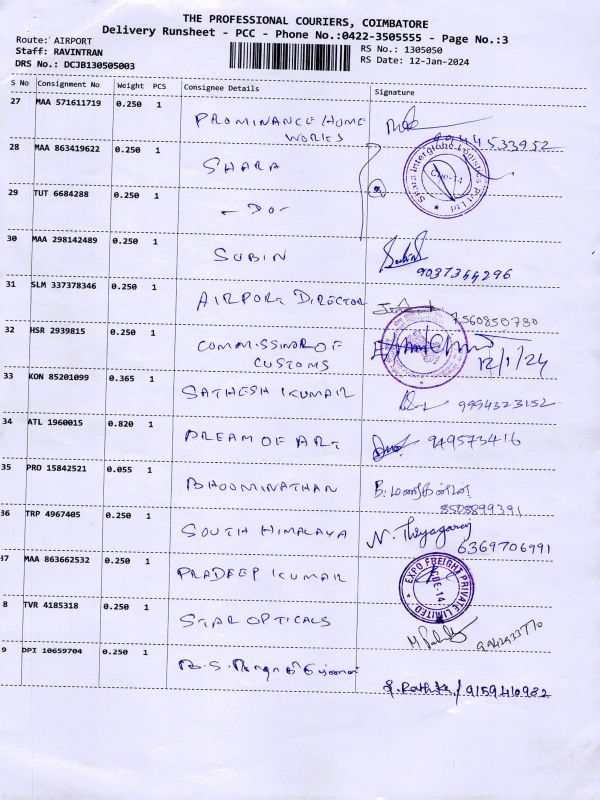 THE PROFESSIONAL COURIERS, COIMBATORE
Delivery Runsheet - PCC - Phone No.:0422-3505555 - Page No.:3
Route: AIRPORT
Staff: RAVINTRAN
DRS No.: DCJB130505003
RS No.: 1305050
RS Date: 12-Jan-2024
S No Consignment No Weight PCS Consignee Details Signature
27 MAA 571611719 0.250 1 PROMINANCE HOME
WORKS
9944533952
28 MAA 863419622 0.250 1 SHARA
29 TUT 6684288 0.250 1 -DO-
30 MAA 298142489 0.250 1 SUBIN
9037344296
31 SLM 337378346 0.250 1 AIRPORT DIRECTOR
7560850780
32 HSR 2939815 0.250 1 COMMISSINOR OF
CUSTOMS
12/1/24
33 KON 85201099 0.365 1 SATHESH KUMAR 9994323152
34 ATL 1960015 0.820 1 DREAM OF ART 949573416
35 PRO 15842521 0.055 1 BHOOMINATHAN B. மணிகண்டன்
8508899391
36 TRP 4967405 0.250 1 SOUTH HIMALAYA N. Thiyagaraj
6369706991
37 MAA 863662532 0.250 1 PRADEEP KUMAR EXPO FREIGHT PRIVATE LIMITED
CJE-14
8 TVR 4185318 0.250 1 STAR OPTICALS
9 DPI 10659704 0.250 1
9159410982